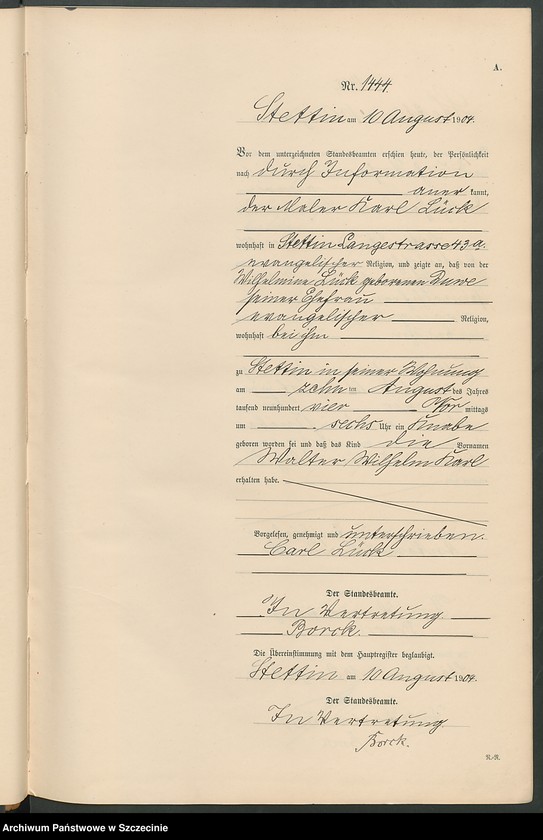 A.
Nr. 1444
Stettin am 10 August 1904.
Vor dem unterzeichneten Standesbeamten erschien heute, der Persönlichkeit
nach durch Information
aner kannt,
der Maler Karl Lück
wohnhaft in Stettin Langestrasse 43 a.
evangelischer Religion, und zeigte an, daß von der
Wilhelmine Lück geborenen Duwe
seiner Ehefrau
evangelischer Religion,
wohnhaft bei ihm
zu Stettin in seiner Wohnung
am zehn ten August des Jahres
tausend neunhundert vier Vor mittags
um sechs Uhr ein Knabe
geboren worden sei und daß das Kind die Vornamen
Walter Wilhelm Karl
erhalten habe.
Vorgelesen, genehmigt und unterschrieben.
Carl Lück
Der Standesbeamte.
In Vertretung
Borck.
Die Übereinstimmung mit dem Hauptregister beglaubigt.
Stettin am 10 August 1904.
Der Standesbeamte.
In Vertretung
Borck.
Archiwum Państwowe w Szczecinie